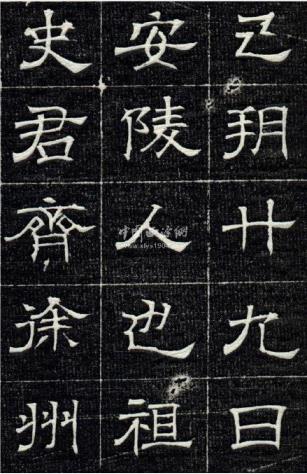 己朔廿九日
安陵人也祖
史君齊徐州